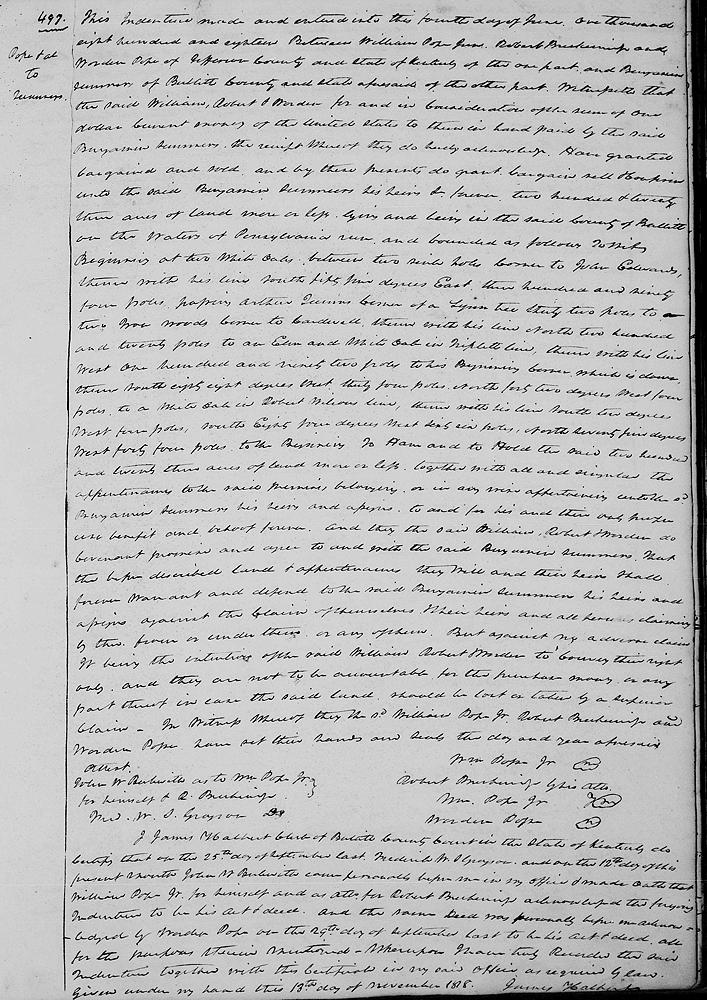 497.
Pope & al
to
Summers.
This Indenture made and entered into this fourth day of June, one thousand
eight hundred and eighteen Between William Pope Junr. Robert Breckinridge and
Worden Pope of Jefferson County and State of Kentucky of the one part, and Benjamin
Summers of Bullitt County and State aforesaid of the other part. Witnesseth that
the said William, Robert & Worden for and in Consideration of the sum of one
dollar Current money of the United States to them in hand paid by the said
Benjamin Summers, the receipt whereof they do hereby acknowledge. Have granted
bargained and sold, and by these presents do grant, bargain sell & confirm
unto the said Benjamin Summers his heirs &c forever, two hundred & twenty
three acres of land more or less, lying and being in the said County of Bullitt
on the Waters of Pensylvania run, and bounded as follows To Wit,
Beginning at two White Oaks, between two sink holes Corner to John Edwards,
thence with his line South fifty five degrees East, three hundred and ninety
four poles, passing Arthur Corner of a Lynn tree thirty two poles to a
two Iron woods Corner to Cardwell, thence with his line North two hundred
and twenty poles to an Elm and White Oak in Tripletts line, thence with his line
West One hundred and ninety two poles to his Beginning Corner, which is down,
thence South eighty eight degrees West, thirty four poles, North forty two degrees West four
poles, to a White Oak in Robert Wilsons line, thence with his line South two degrees
West four poles, South Eighty four degrees West sixty six poles, North seventy five degrees
West forty four poles, to the Beginning To Have and to Hold the said two hundred
and twenty three acres of land more or less, together with all and singular the
appurtenances to the said premises belonging, or in any wise appertaining unto the sd.
Benjamin Summers his heirs and assigns, to and for his and their only proper
use benefit and behoof forever And they the said William, Robert & Worden do
Covenant promise and agree to and with the said Benjamin Summers, that
the before described land & appurtenances they Will and their heirs shall
forever Warrant and defend to the said Benjamin Summers his heirs and
assigns against the Claim of themselves & their heirs and all persons claiming
by this from or under them or any of them. But against no adverse claim
It being the intention of the said William Robert & Worden to Convey their right
only, and they are not to be accountable for the purchase money, or any
part thereof in case the said land, should be lost or taken by a superior
Claim – In Witness Whereof they the sd. William Pope Jr. Robert Breckinridge and
Worden Pope, have set their hands and seals the day and year aforesaid
Attest.
Wm Pope Jr
John W as to Wm Pope Jr.
Robert Breckinridge by his Atto.
for himself & R. Breckinridge
Wm. Pope Jr
Fred. W. S. Grayson
Worden Pope
I James Halbert Clerk of Bullitt County Court in the State of Kentucky do
Certify that on the 25th day of September last Frederick W. S Grayson, and on the 12th day of this
present month John W came personally before me in my office & made Oath that
William Pope Jr. for himself and as atto. for Robert Breckinridge acknowledged the foregoing
Indenture to be his act & deed. And the same Deed was personally before me acknow-
ledged by Worden Pope on the 29th day of September last to be his act & deed, all
for the purposes therein mentioned – Whereupon I have truly Recorded the said
Indenture together with this Certificate in my said office as required by law.
Given under my hand this 13th day of November 1818. James Halbert